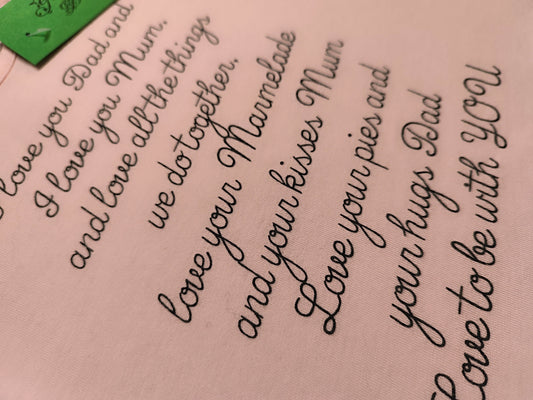 I love you Dad and
I love you Mum,
and love all the things
we do together,
love your Marmelade
and your kisses Mum
Love your pies and
your hugs Dad
Love to be with YOU